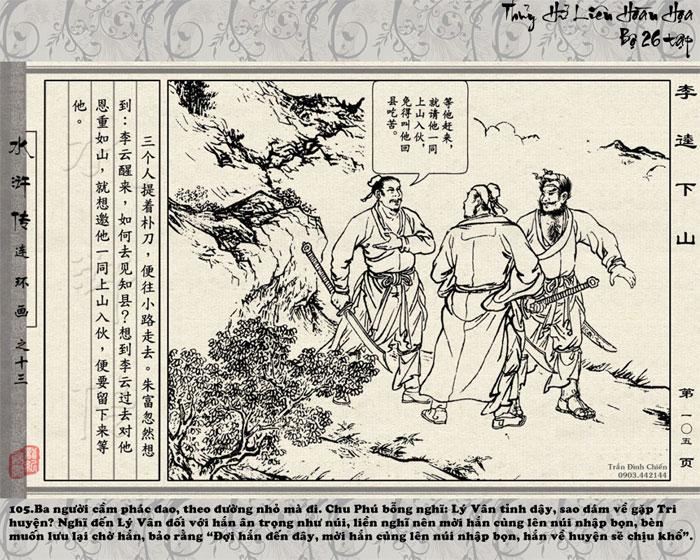 Thủy Hử Liên Hoàn Họa
Bộ 26 tập
李逵下山
等他赶来，
就请他一同
上山入伙，
免得叫他回
县吃苦。
三个人提着朴刀，便往小路走去。朱富忽然想
到：李云醒来，如何去见知县？想到李云过去对他
恩重如山，就想邀他一同上山入伙，便要留下来等
他。
水浒传连环画之十三
第一〇五页
Trần Đình Chiến
0903.442144
105.Ba người cầm phác đao, theo đường nhỏ mà đi. Chu Phú bỗng nghĩ: Lý Vân tỉnh dậy, sao dám về gặp Tri
huyện? Nghĩ đến Lý Vân đối với hắn ân trọng như núi, liền nghĩ nên mời hắn cùng lên núi nhập bọn, bèn
muốn lưu lại chờ hắn, bảo rằng “Đợi hắn đến đây, mời hắn cùng lên núi nhập bọn, hắn về huyện sẽ chịu khổ”.